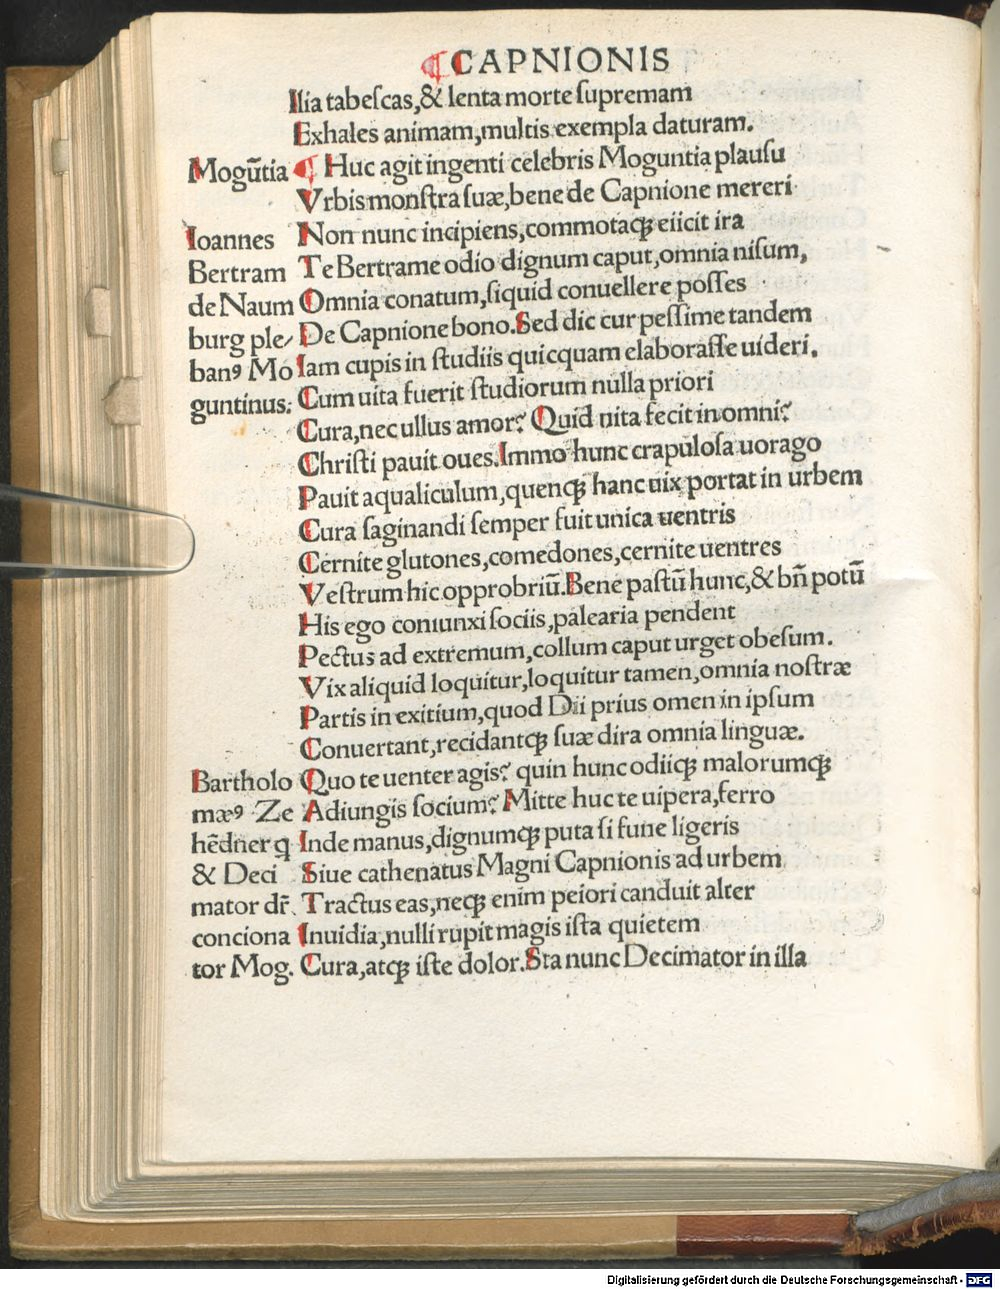 ¶CAPNIONIS
Ilia tabeſcas,& lenta morte ſupremam
Exhales animam,multis exempla daturam.
Mogūtia ¶ Huc agit ingenti celebris Moguntia plauſu
Vrbis monſtra ſuæ,bene de Capnione mereri
Ioannes Non nunc incipiens,commotaqꝫ eiicit ira
Bertram Te Bertrame odio dignum caput,omnia niſum,
de Naum Omnia conatum,ſiquid conuellere poſſes
burg ple⸗ De Capnione bono.Sed dic cur peſſime tandem
banꝰ Mo Iam cupis in ſtudiis quicquam elaboraſſe uideri.
guntinus: Cum uita fuerit ſtudiorum nulla priori
Cura,nec ullus amor? Quid uita fecit in omni?
Chriſti pauit oues.Immo hunc crapuloſa uorago
Pauit aqualiculum,quenqꝫ hanc uix portat in urbem
Cura ſaginandi ſemper fuit unica uentris
Cernite glutones,comedones,cernite uentres
Veſtrum hic opprobriū.Bene paſtū hunc,& bn̄ potū
His ego coniunxi ſociis,palearia pendent
Pectus ad extremum,collum caput urget obeſum.
Vix aliquid loquitur,loquitur tamen,omnia noſtræ
Partis in exitium,quod Dii prius omen in ipſum
Conuertant,recidantqꝫ ſuæ dira omnia linguæ.
Bartholo Quo te uenter agis? quin hunc odiiqꝫ malorumqꝫ
mæꝰ Ze Adiungis ſocium? Mitte huc te uipera,ferro
hēdner q̄ Inde manus,dignumqꝫ puta ſi fune ligeris
& Deci Siue cathenatus Magni Capnionis ad urbem
mator dr̄. Tractus eas,neqꝫ enim peiori canduit alter
conciona Inuidia,nulli rupit magis iſta quietem
tor Mog. Cura,atqꝫ iſte dolor.Sta nunc Decimator in illa
Digitalisierung gefördert durch die Deutsche Forschungsgemeinschaft - DFG